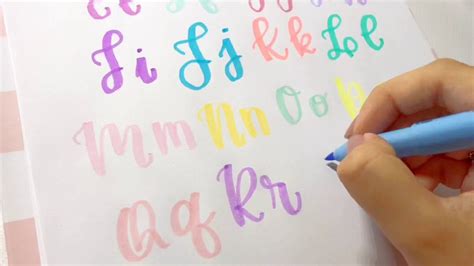 Ii Jj Kk Ll
Mm Nn Oo P
Qq Rr